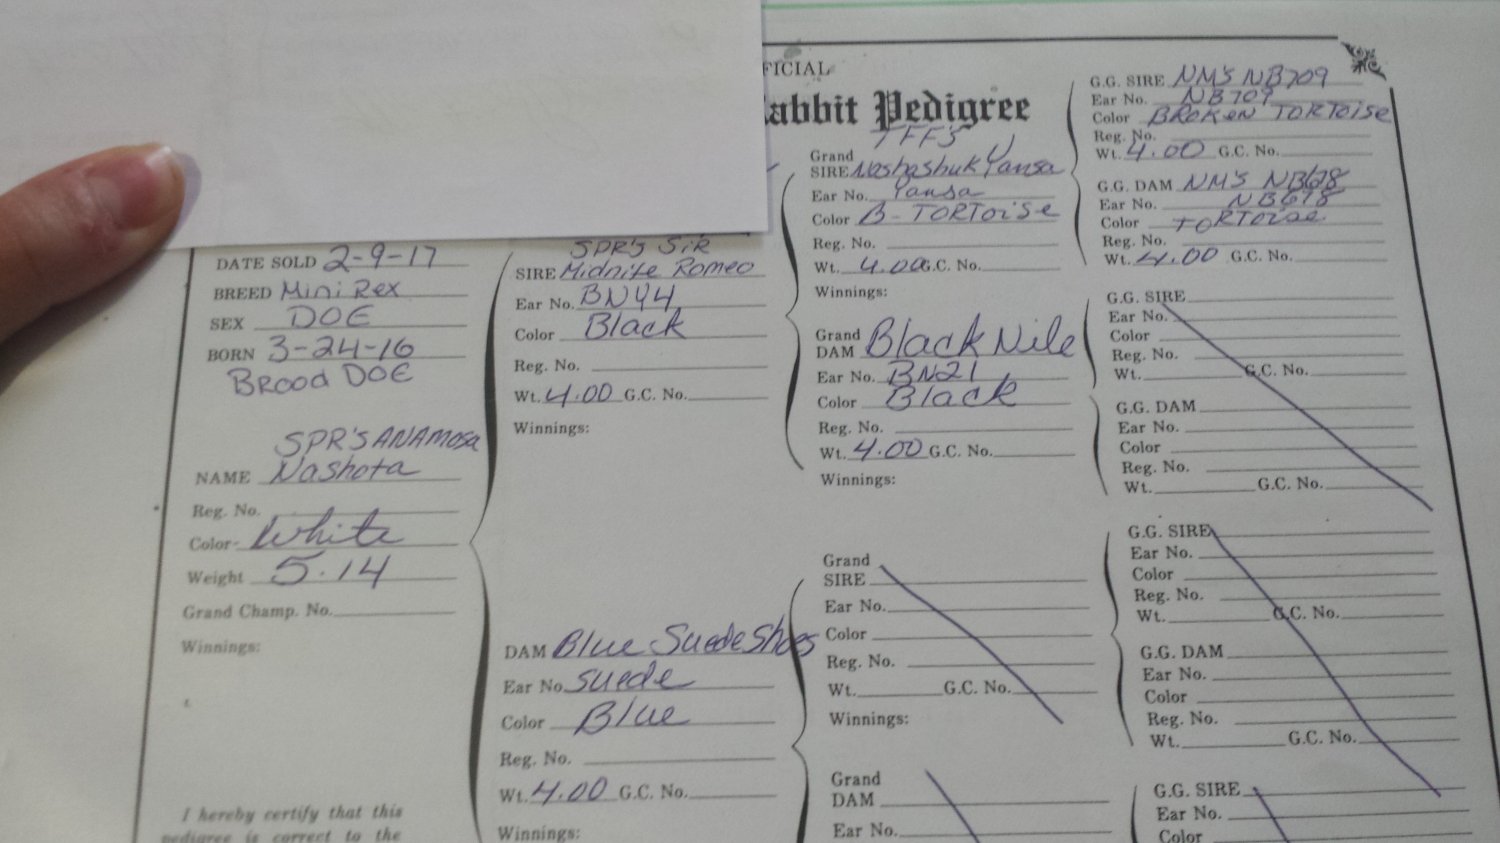 FICIAL
Rabbit Pedigree
DATE SOLD 2-9-17
BREED Mini Rex
SEX DOE
BORN 3-24-16
Brood DOE
SPR'S ANAMosa
NAME Nashota
Reg. No.
Color- White
Weight 5.14
Grand Champ. No.
Winnings:
I hereby certify that this
pedigree is correct to the
SPR'S Sir
SIRE Midnite Romeo
Ear No. BNY4
Color Black
Reg. No.
Wt. 4.00 G.C. No.
Winnings:
DAM Blue Suede Shoes
Ear No. Suede
Color Blue
Reg. No.
Wt. 4.00 G.C. No.
Winnings:
TFF'S
Grand
SIRE Nashashuk Yansa
Ear No. Yansa
Color B-TORTOiSE
Reg. No.
Wt. 4.00 G.C. No.
Winnings:
Grand
DAM Black Nile
Ear No. BN21
Color Black
Reg. No.
Wt. 4.00 G.C. No.
Winnings:
Grand
SIRE
Ear No.
Color
Reg. No.
Wt. G.C. No.
Winnings:
Grand
DAM
Ear No.
G.G. SIRE NM'S NB709
Ear No. NB709
Color BROKEN TORTOiSE
Reg. No.
Wt. 4.00 G.C. No.
G.G. DAM NM'S NB678
Ear No. NB678
Color TORTOiSE
Reg. No.
Wt. 4.00 G.C. No.
G.G. SIRE
Ear No.
Color
Reg. No.
Wt. G.C. No.
G.G. DAM
Ear No.
Color
Reg. No.
Wt. G.C. No.
G.G. SIRE
Ear No.
Color
Reg. No.
Wt. G.C. No.
G.G. DAM
Ear No.
Color
Reg. No.
Wt. G.C. No.
G.G. SIRE
Ear No.
Color